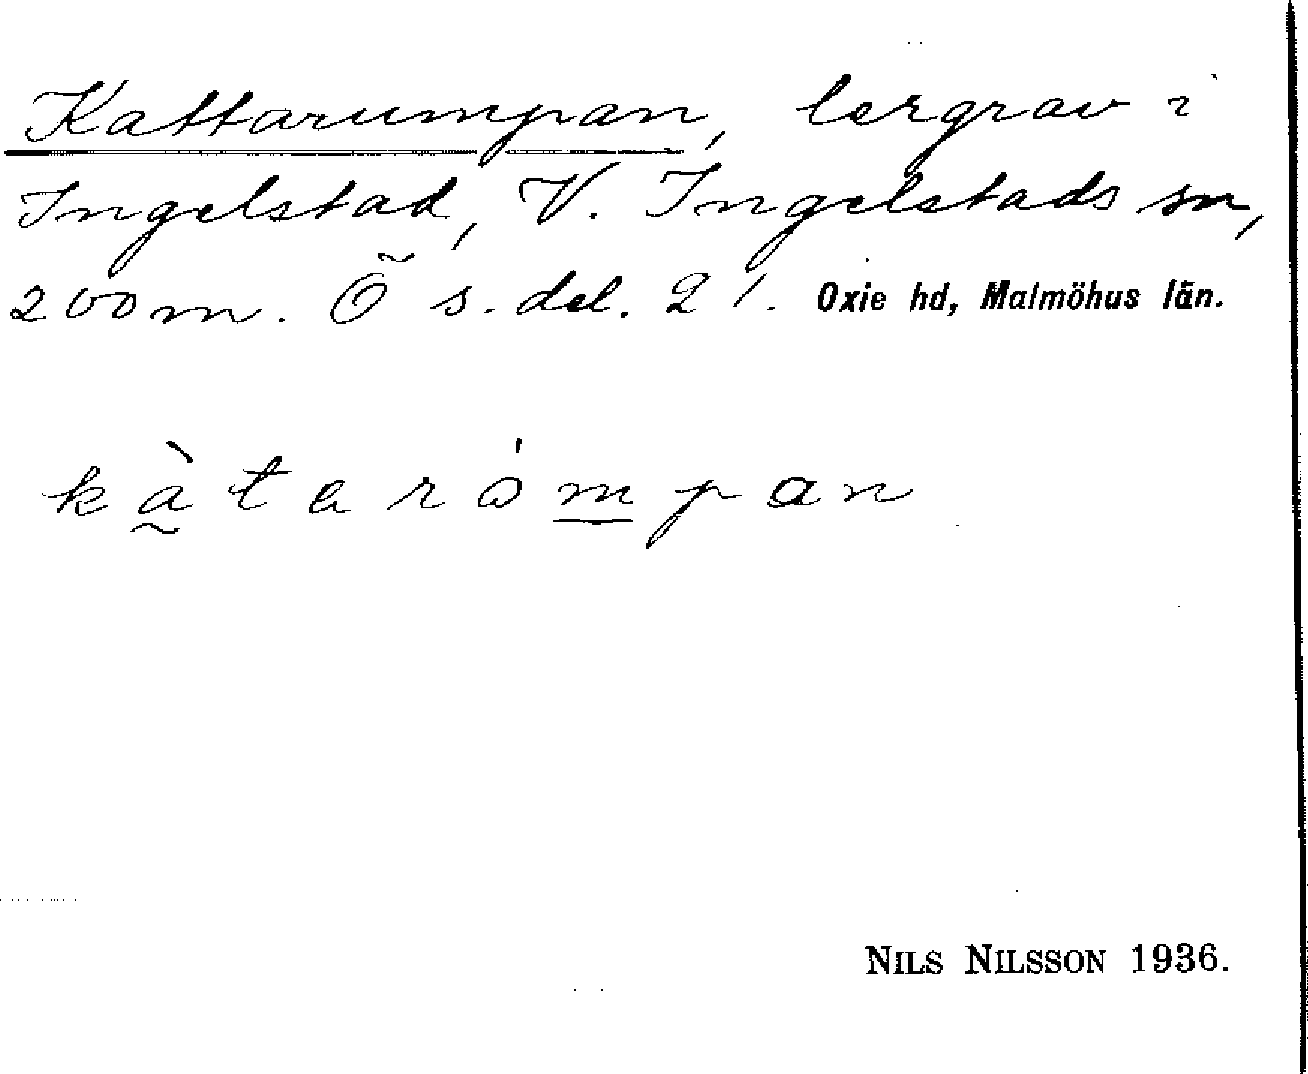 Kattarumpan, lergrav i
Ingelstad, V. Ingelstads sn,
200 m. Ö s. del. 2 1. Oxie hd, Malmöhus län.
kàtarómpan
NILS NILSSON 1936.